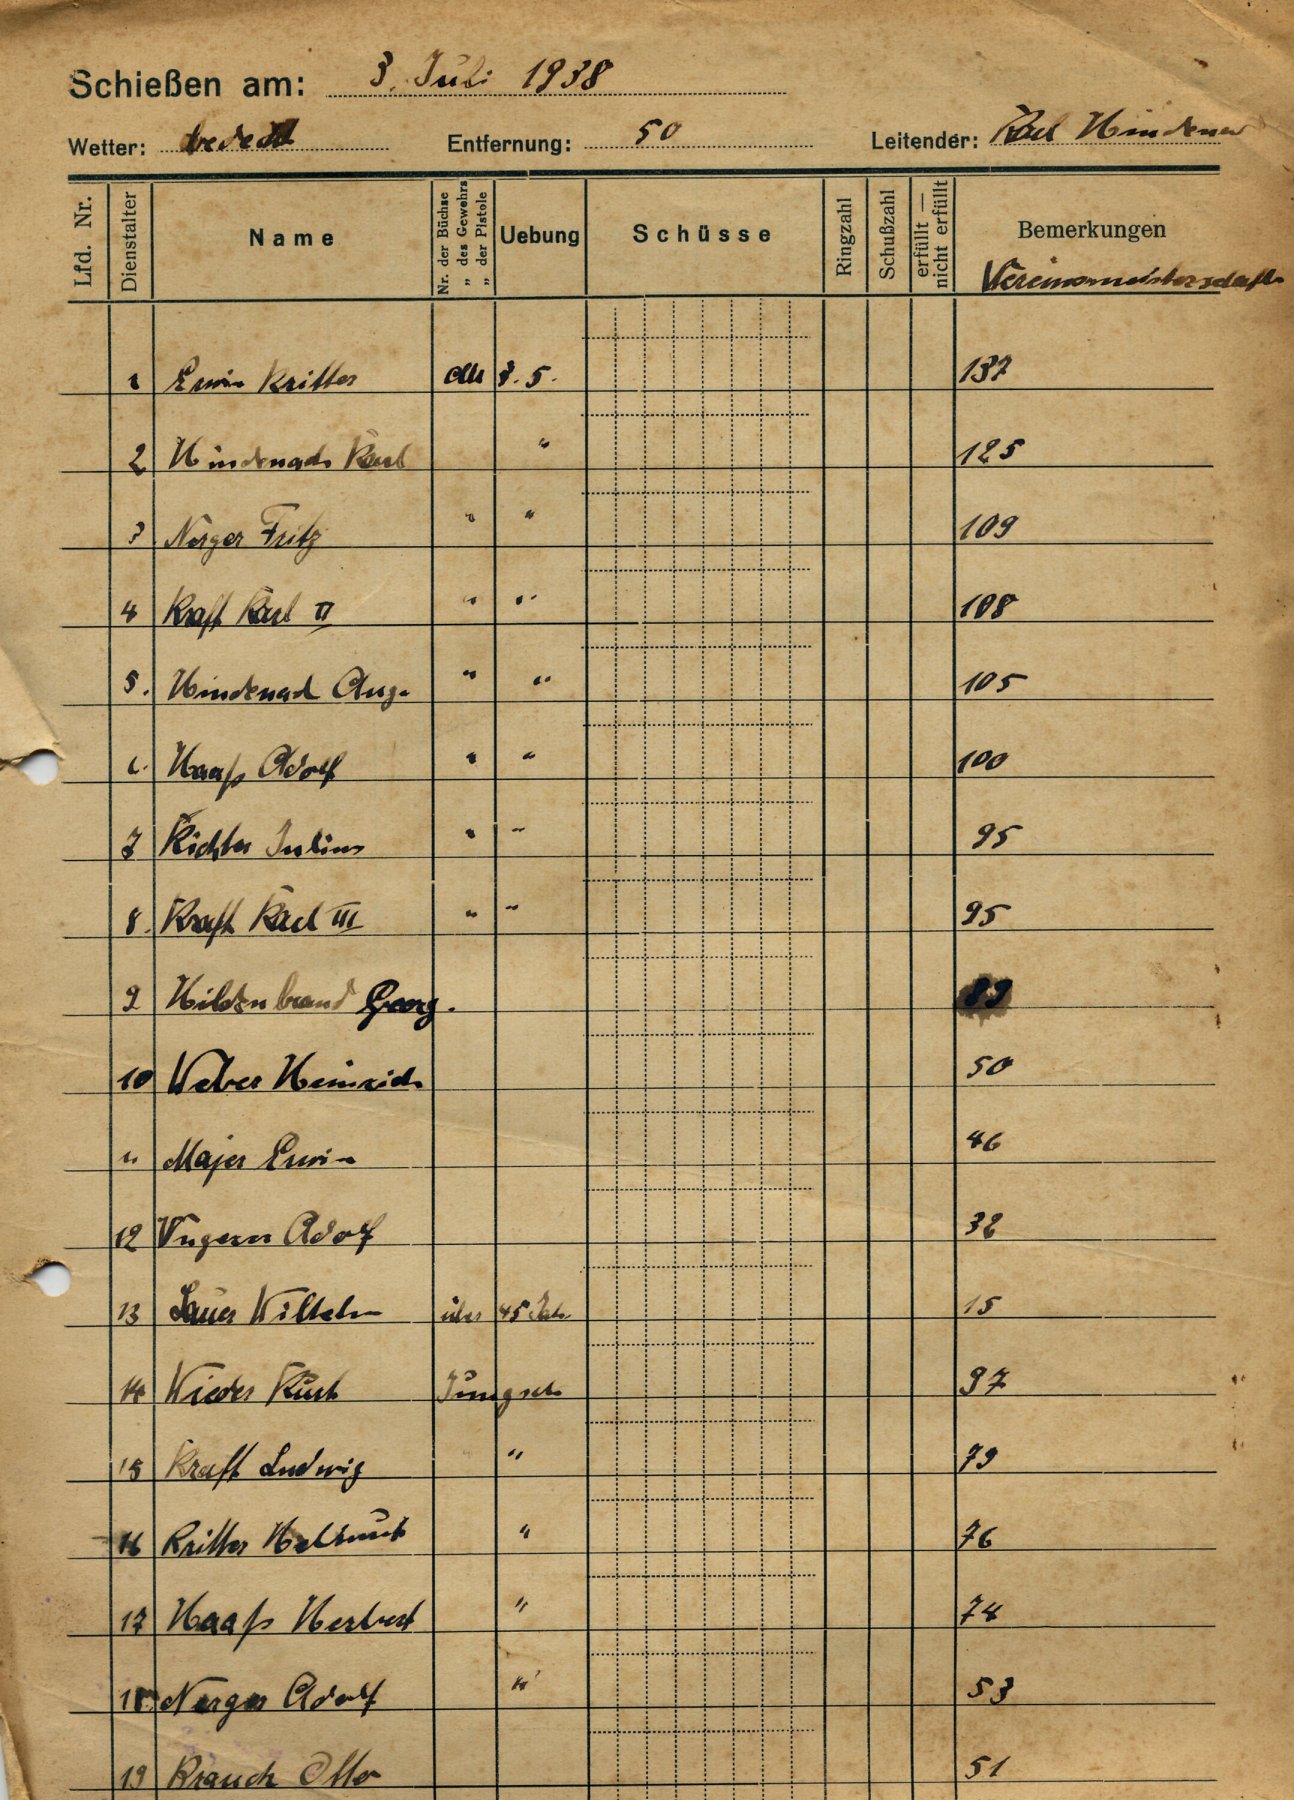 Schießen am: 3. Juli 1938
Wetter: bedeckt Entfernung: 50 Leitender: Karl
Lfd. Nr. Dienstalter Name Nr. der Büchse „ des Gewehrs „ der Pistole Uebung Schüsse Ringzahl Schußzahl erfüllt — nicht erfüllt Bemerkungen
Vereinsmeisterschaft
1 Erwin Ritter 3. 5. 137
2 Karl " 125
3 Nerger Fritz " " 109
4 Kraft Karl II " " 108
5. Hindenach Aug. " " 105
6. Haaß Adolf " " 100
7 Richter Julius " " 95
8. Kraft Karl III " " 95
9 Hildenbrand Georg. 89
10 Weber Heinrich 50
11 Majer Erwin 46
12 Ungerer Adolf 32
13 Lauer Wilhelm über 45 Jah. 15
14 Wieder Kurt Jungsch 97
15 Kraft Ludwig " 79
16 Ritter Helmut " 76
17 Haaß Herbert " 74
18. Nerger Adolf " 53
19 Krauch Otto 51